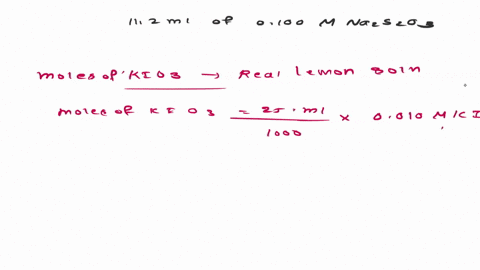 11.2 ml of 0.100 M Na2S2O3
moles of KIO3 → Real lemon soln
moles of KIO3 = 25.ml / 1000 × 0.010 M KI